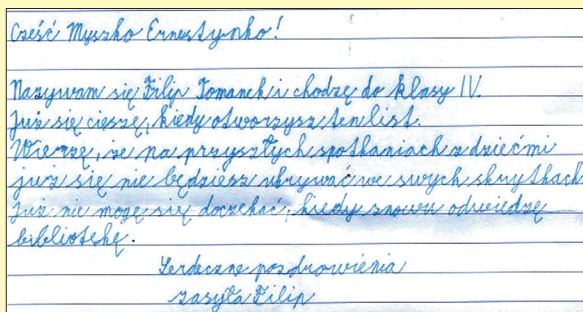 Cześć Myszko Ernestynko!
Nazywam się Filip Tomanek i chodzę do klasy IV.
Już się cieszę, kiedy otworzysz ten list.
Wierzę, że na przyszłych spotkaniach z dziećmi
już się nie będziesz ukrywać we swych skrytkach.
Już nie mogę się doczekać, kiedy znowu odwiedzę
bibliotekę.
Serdeczne pozdrowienia
zasyła Filip